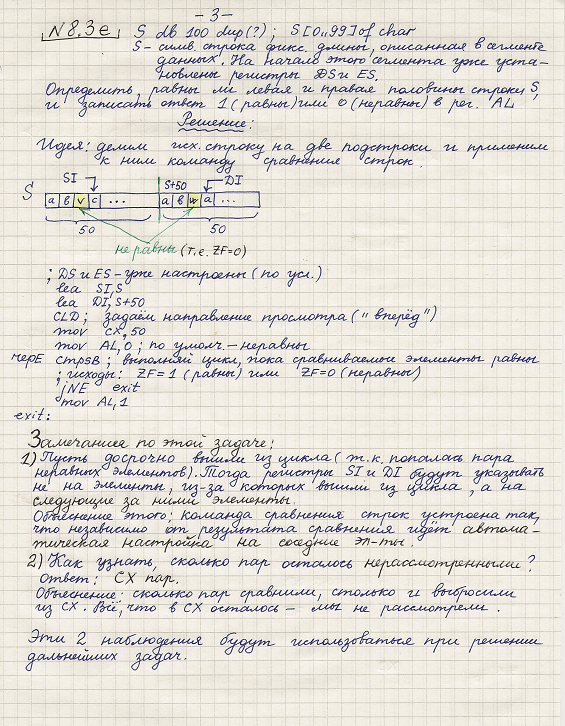 - 3 -
N 8.3 е S db 100 dup(?) ; S[0..99] of char
S - симв. строка фикс. длины, описанная в сегменте
данных. На начало этого сегмента уже уста-
новлены регистры DS и ES.
Определить, равны ли левая и правая половины строки S,
и записать ответ 1 (равны) или 0 (неравны) в рег. AL
Решение:
Идея: делим исх. строку на две подстроки и применим
к ним команду сравнения строк.
SI S+50 DI
S a b v c ... a b w a ...
50 50
не равны (т.е. ZF=0)
; DS и ES - уже настроены (по усл.)
lea SI, S
lea DI, S+50
CLD ; задаём направление просмотра ("вперёд")
mov CX, 50
mov AL, 0 ; по умолч. - неравны
repE cmpsB ; выполняй цикл, пока сравниваемые элементы равны
; исходы: ZF=1 (равны) или ZF=0 (неравны)
jNE exit
mov AL, 1
exit:
Замечание по этой задаче:
1) Пусть досрочно вышли из цикла (т.к. попалась пара
неравных элементов). Тогда регистры SI и DI будут указывать
не на элементы, из-за которых вышли из цикла, а на
следующие за ними элементы.
Объяснение этого: команда сравнения строк устроена так,
что независимо от результата сравнения идёт автома-
тическая настройка на соседние эл-ты.
2) Как узнать, сколько пар осталось нерассмотренными?
Ответ: CX пар.
Объяснение: сколько пар сравнили, столько и выбросили
из CX. Всё, что в CX осталось - мы не рассмотрели.
Эти 2 наблюдения будут использоваться при решении
дальнейших задач.